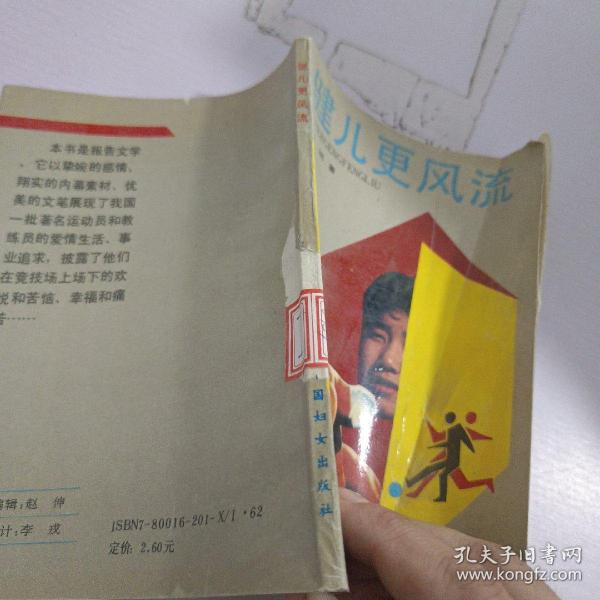 健儿更风流
健儿更风流
本书是报告文学
，它以挚婉的感情、
翔实的内幕素材、优
美的文笔展现了我国
一批著名运动员和教
练员的爱情生活、事
业追求，披露了他们
在竞技场上场下的欢
悦和苦恼、幸福和痛
苦……
国妇女出版社
编辑：赵 伸
计：李 戎
ISBN7-80016-201-X/I·62
定价：2.60元
孔夫子旧书网
www.kongfz.com